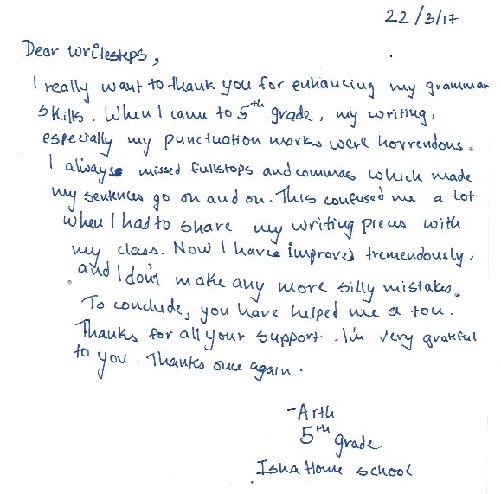 22/3/17
Dear Writesteps,
I really want to thank you for enhancing my grammar
skills. When I came to 5th grade, my writing,
especially my punctuation marks were horrendous.
I always missed fullstops and commas which made
my sentences go on and on. This confused me a lot
when I had to share my writing pieces with
my class. Now I have improved tremendously.
and I don't make any more silly mistakes.
To conclude, you have helped me a ton.
Thanks for all your support. I'm very grateful
to you. Thanks once again.
-Arth
5th grade
Isha Home school